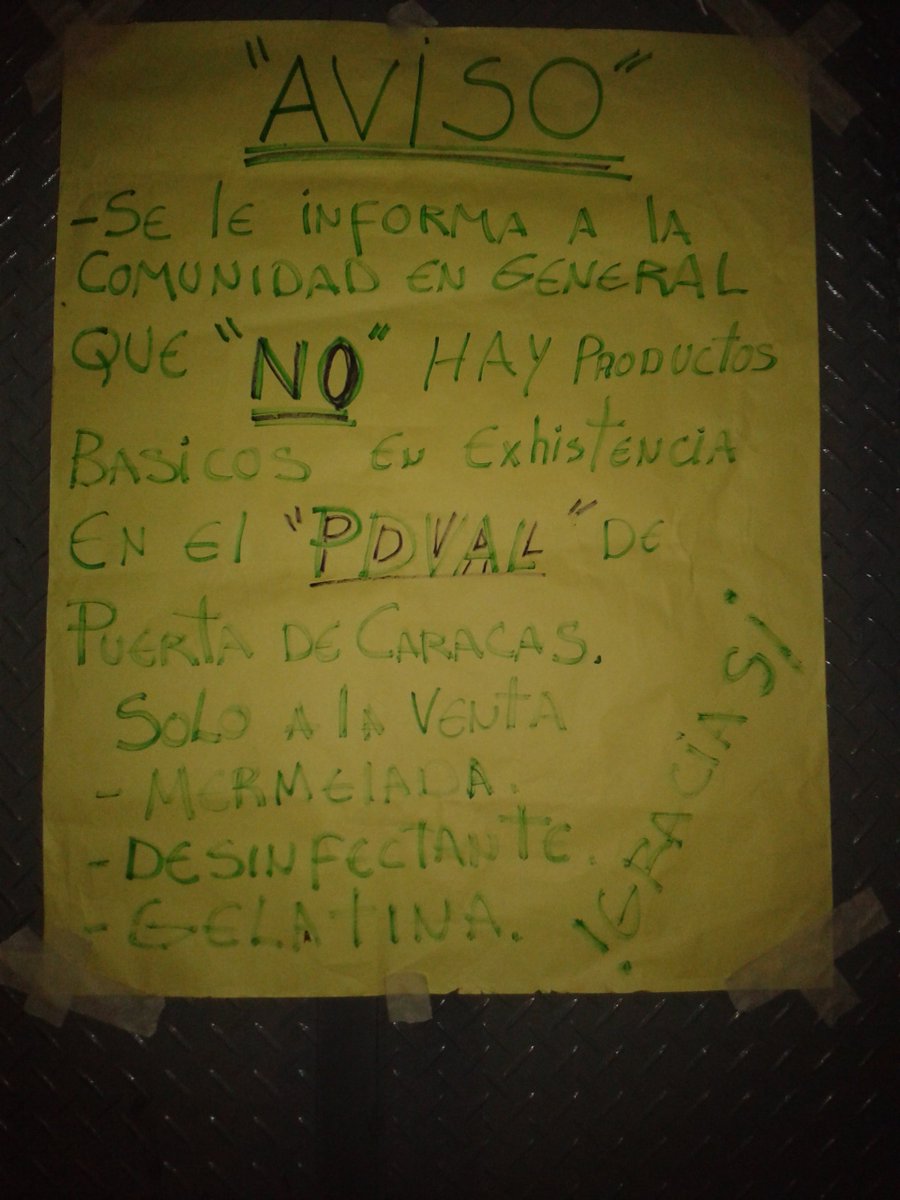 "AViSO"
-SE lE iNFORMA A lA
COMUNIDAD EN GENERAL
QUE "NO" HAY PRODUCtOS
BASiCOS EN ExhistENCiA
EN El "PDVAL" DE
PUERtA DE CARACAS.
SOLO A lA VENtA
- MERMElADA.
- DESiNFECtANtE.
- GELAtINA.
¡GRACiAS!